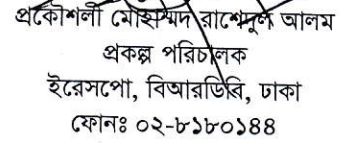 প্রকৌশলী মোহাম্মদ রাশেদুল আলম
প্রকল্প পরিচালক
ইরেসপো, বিআরডিবি, ঢাকা
ফোনঃ ০২-৮১৮০১৪৪